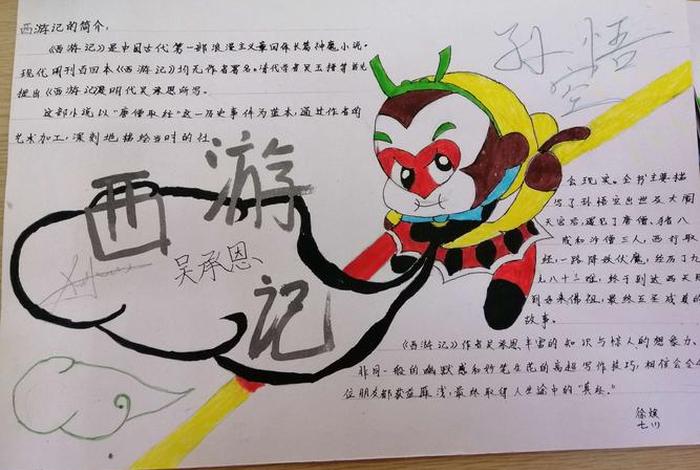 西游记的简介:
《西游记》是中国古代第一部浪漫主义章回体长篇神魔小说。
现代刊百回本《西游记》均无作者署名。清代学者吴玉搢首先
提出《西游记》明代吴承恩所写。
这部小说以"唐僧取经"这一历史事件为蓝本,通过作者的
艺术加工,深刻地描绘当时的社
孙悟空
西游记
吴承恩
会现实。全书主要描
写了孙悟空出世及大闹
天宫后,遇见了唐僧、猪八
戒和沙僧三人,西行取
经,一路降妖伏魔,经历了九
九八十三难,终于到达西天见
到如来佛祖,最终五圣成真的
故事。
《西游记》作者吴承恩丰富的知识与惊人的想象力、
非同一般的幽默感和妙笔生花的高超写作技巧,相信会令
位朋友都获益匪浅,最终取得人生途中的"真经。"